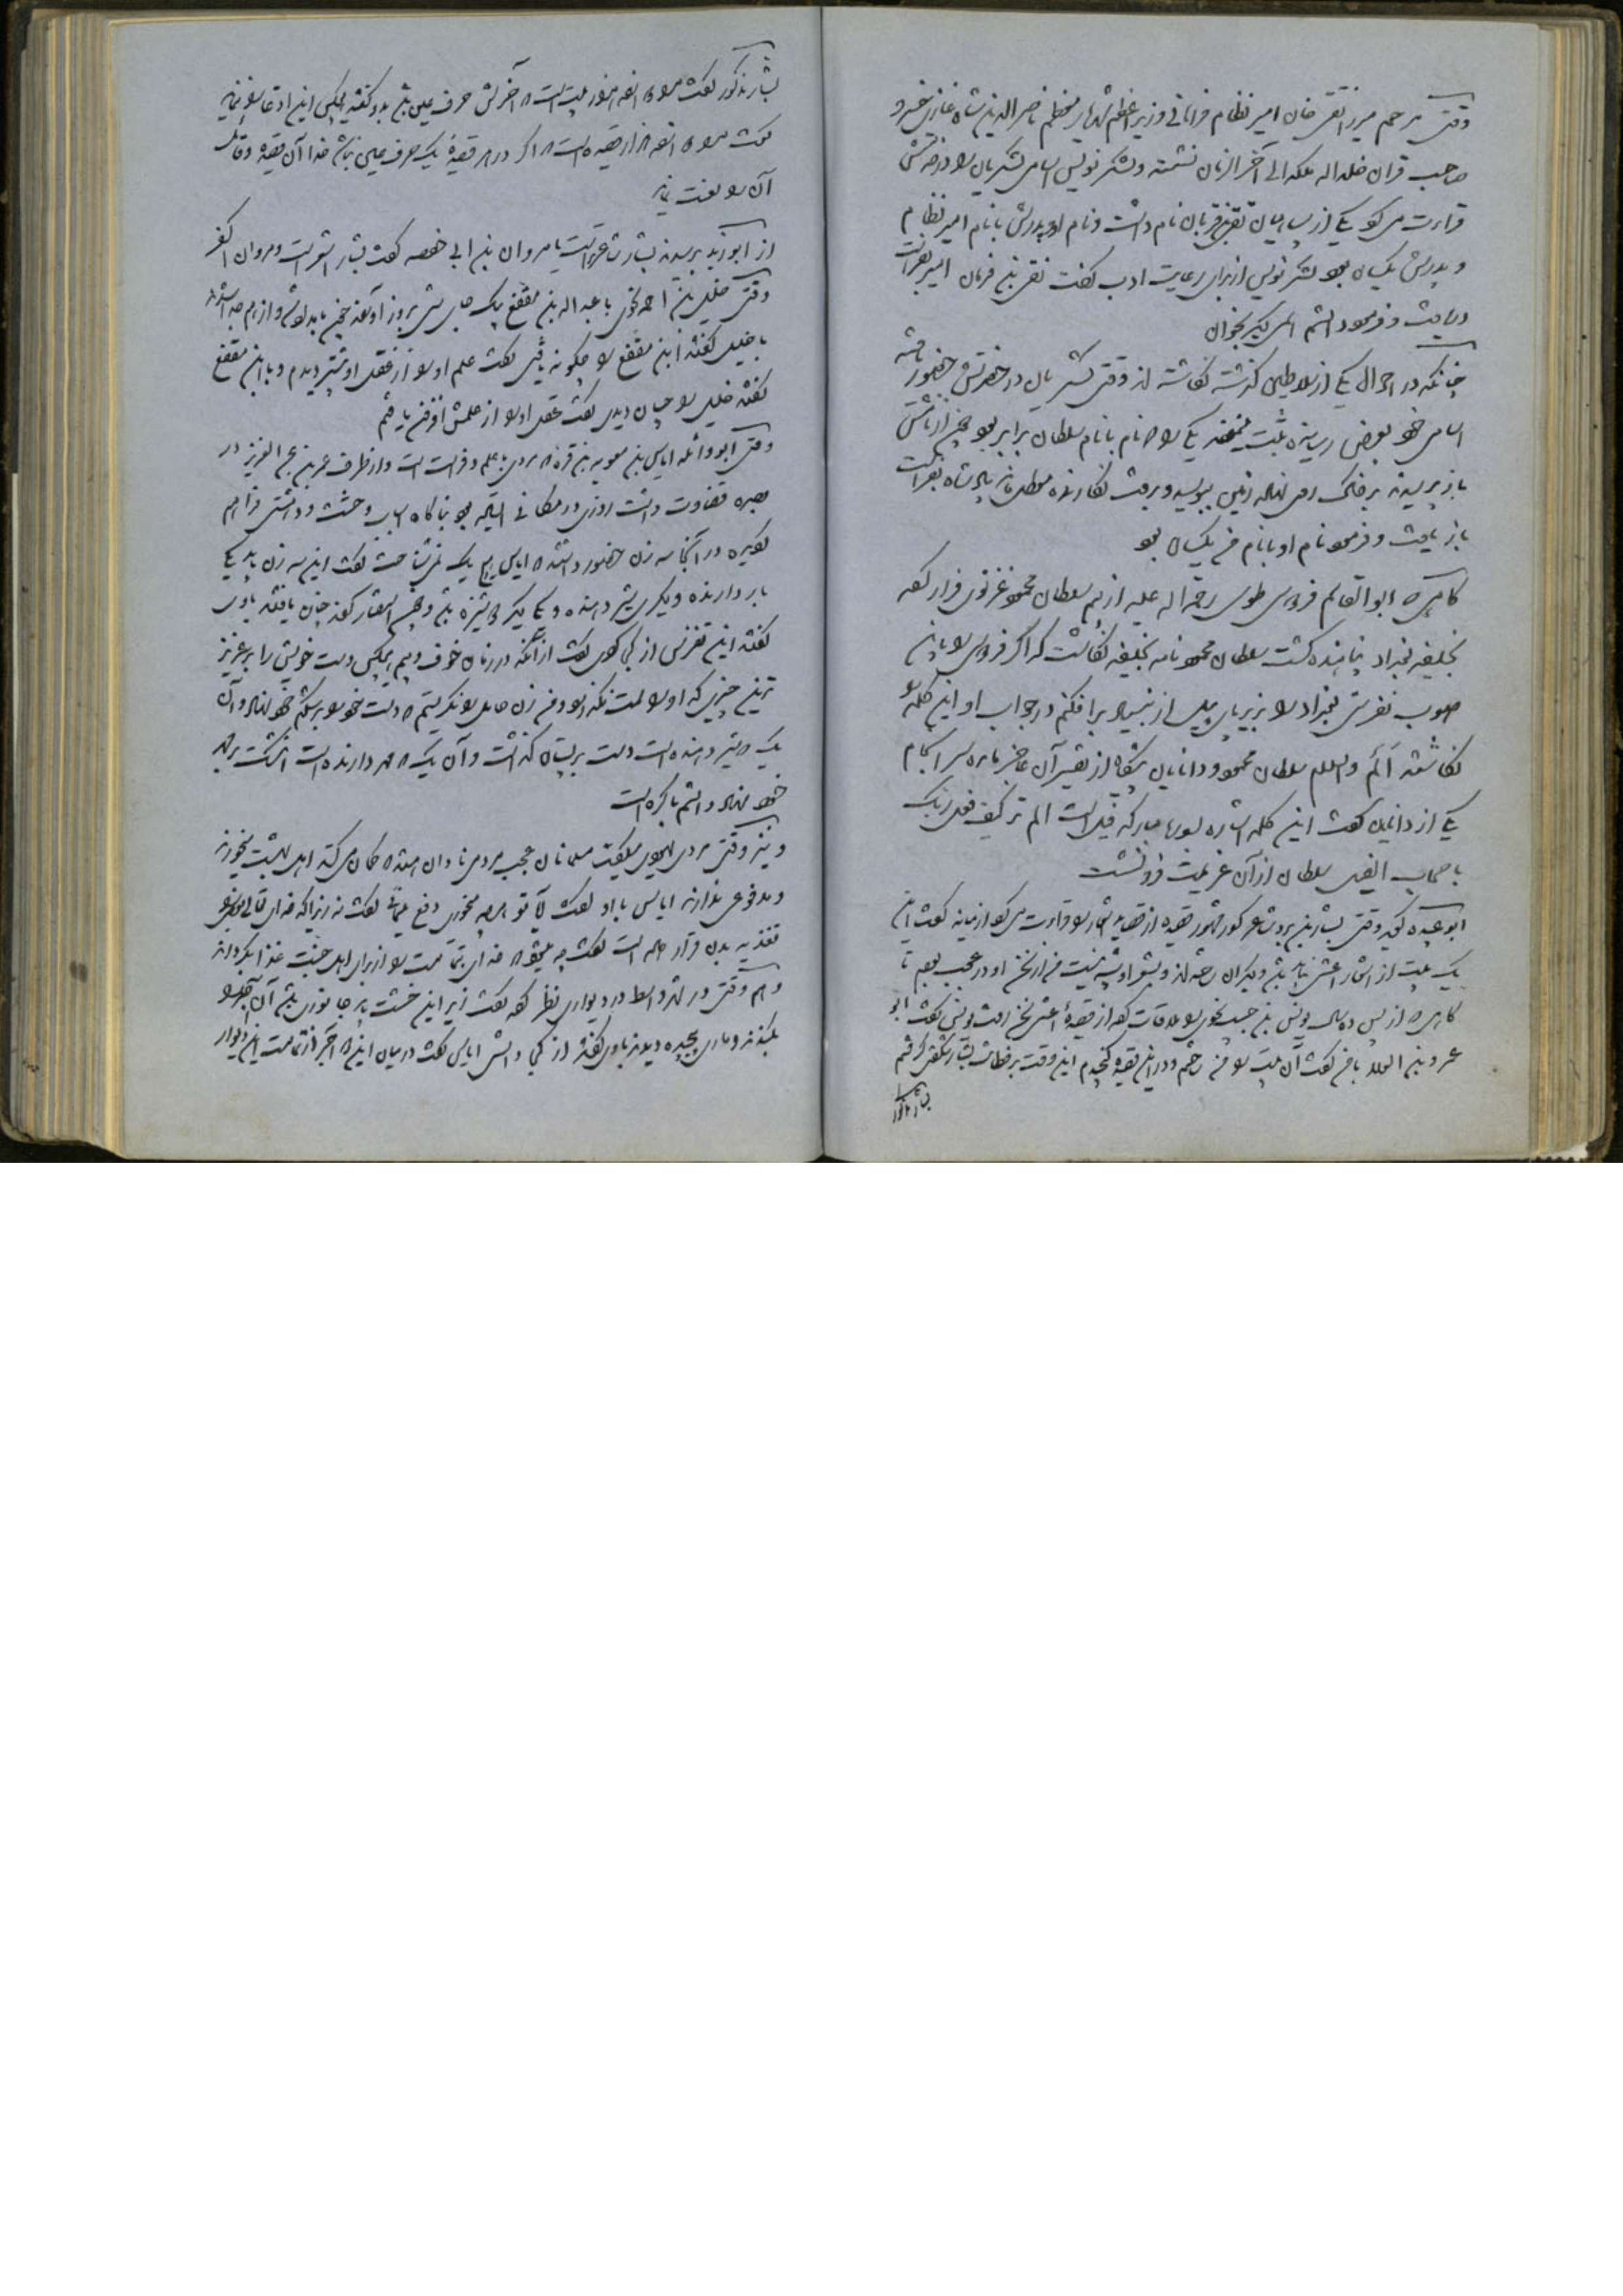 وقتی مرحوم میرزا تقی خان امیر نظام فراهانی وزیر اعظم شهریار معظم ناصرالدین شاه غازی خسرو
صاحب قران خلد اله ملکه الی آخر الزمان نشسته و لشکر نویس اسامی لشکریان را در حضرتش
قراءت می کرد یکی از سپاهیان تقی بن قربان نام داشت و نام او و پدرش با نام امیر نظام
و پدرش یکسان بود لشکر نویس از برای رعایت ادب گفت نقی بن فرمان امیر بفراست
دریافت و فرمود اسم اصلی بخوان
چنانکه در احوال یکی از سلاطین گذشته نگاشته اند وقتی لشکریان در حضرتش حضور یافته
اسامی خود بعرض رسانیده ثبت نمودند یکی را که نام با نام سلطان برابر بود چون از نامش
باز پرسیدند بر خاک روی نهاده زمین ببوسید و برفت نگارنده معطل ماند پادشاه بفراست
باز یافت و فرمود نام او با نام من یکسان بود
گاهی که ابوالقاسم فردوسی طوسی رحمة اله علیه از بیم سلطان محمود غزنوی فرار کرده
بخلیفه بغداد پناهنده گشت سلطان محمود نامه بخلیفه نگاشت که اگر فردوسی را باین
صوب نفرستی بغداد را بزیر پای پیل از بنیاد برافکنم در جواب او این کلمه را
نگاشتند الم والسلم سلطان محمود و دانایان پیشگاه از تفسیر آن عاجز مانده سرانجام
یکی از دانایان گفت این کلمه اشاره بسوره مبارکه فیل است الم تر کیف فعل ربک
باصحاب الفیل سلطان از آن عزیمت فرو نشست
ابو عبیده گوید وقتی بشار بن برد شاعر کور مشهور قصیده از قصاید اعشی را قراءت می کرد از میانه گفت این
یک بیت از اشعار اعشی نباید باشد و دیگران رخنه اند و بشعر او شبیه نیست من از سخن او در عجب بودم تا
گاهی که از پس ده سال یونس بن حبیب نحوی را ملاقات کرده از قصیدهٔ اعشی سخن رفت یونس گفت ابو
عمرو بن العلاء با من گفت آن بیت را من ساختم و در این قصیده گنجیدم این وقت بر فطانت بشار شگفتی گرفتم
بشار مذکور
بشار مذکور گفت مرا دوازده هزار بیت است که آخرش حرف عین باشد بدو گفتند هیچکس این ادعا را ننماید
گفت مرا دوازده هزار قصیده است که اگر در هر قصیدهٔ یک حرف عین نباشد خدا آن قصیده و قائل
آن را لعنت نماید
از ابو زید پرسیدند بشار شاعرتر است یا مروان بن ابی حفصه گفت بشار اشعر است و مروان اکفر
وقتی خلیل بن احمد نحوی با عبد اله بن مقفع یک جای شبی بروز آوردند چون بامداد شد و از هم جدا شدند
با خلیل گفتند ابن مقفع را چگونه یافتی گفت علم او را از عقل او بیشتر دیدم و با ابن مقفع
گفتند خلیل را چسان دیدی گفت عقل او را از علمش افزون یافتم
وقتی ابو واثله ایاس بن معویه بن قره که مردی با علم و فراست است و از طرف عمر بن عبد العزیز در
بصره قضاوت داشت روزی در مکانی ایستاده بود بناگاه اسباب وحشت و دهشتی فراهم
گردیده در آنجا سه زن حضور داشتند که ایاس هیچ یک نمی شناخت گفت این سه زن باید یکی
باردارنده و دیگری شیر دهنده و یکی دیگر دوشیزه باشد و چون استفسار کردند چنان یافتند با وی
گفتند این تفرس از کجا کردی گفت از آنکه در زمان خوف و بیم هیچکس دست خویش را بر عزیز
ترین چیزی که او را است نگذارد و من زن حامل را نگریستم که دست خود را بر شکم خود نهاد و آن
یک که شیر دهنده است دست بر پستان گذاشت و آن یک که مهر دارنده است انگشت بر مهر
خود نهاد دانستم باکره است
و نیز وقتی مردی یهودی میگفت مسلمانان عجب مردمی نادان هستند که گمان می کنند اهل بهشت میخورند
و مدفوعی ندارند ایاس با او گفت آیا تو هر چه میخوری دفع مینمائی گفت نه زیرا که خدای تعالی بعضی را
تغذیه بدن قرار داده است گفت چه میشود که خدای تمامت را از برای اهل جنت غذا بگرداند
و هم وقتی در شهر واسط در دیواری نظر کرد گفت زیر این خشت باید جانوری باشد آن آجر را
بکندند و ماری پیچیده دیدند با وی گفتند از کجا دانستی ایاس گفت در میان این دو آجر از تمامت این دیوار